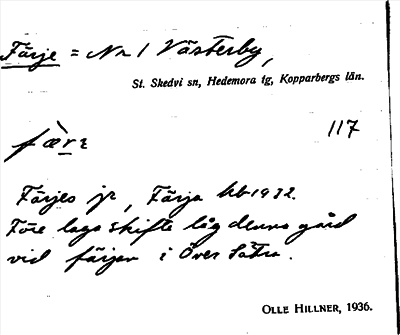 Färje = Nr 1 Västerby,
St. Skedvi sn, Hedemora tg, Kopparbergs län.
117
Färjes jr, Färja kb 1932.
Före laga skifte låg denna gård
vid färjan i Över Sätra.
OLLE HILLNER, 1936.